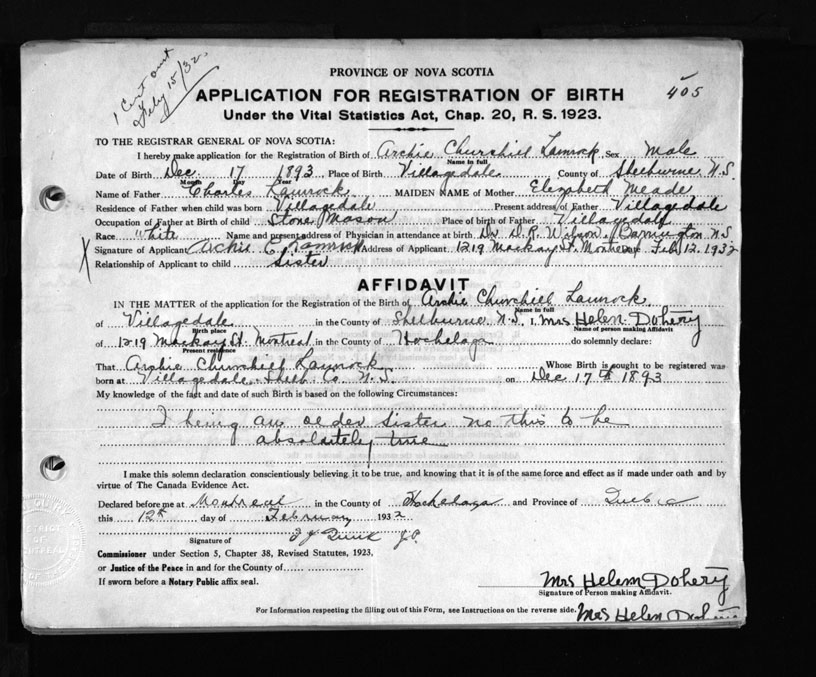 1 Cert out
Feby 15/32.
405
PROVINCE OF NOVA SCOTIA
APPLICATION FOR REGISTRATION OF BIRTH
Under the Vital Statistics Act, Chap. 20, R. S. 1923.
TO THE REGISTRAR GENERAL OF NOVA SCOTIA:
I hereby make application for the Registration of Birth of Archie Churchill Lamrock Sex Male
Name in full
Date of Birth Dec. 17 1893 Place of Birth Villagedale County of Shelburne N.S.
Month Day Year
Name of Father Charles Lamrock MAIDEN NAME of Mother Elizabeth Meade
Residence of Father when child was born Villagedale Present address of Father Villagedale
Occupation of Father at Birth of child Stone Mason Place of birth of Father Villagedale
Race White Name and present address of Physician in attendance at birth Dr D.R. Wilson, Barrington N.S
X Signature of Applicant Archie C. Lamrock Address of Applicant 1219 Mackay St. Montreal Feb 12. 1932
Relationship of Applicant to child Sister
AFFIDAVIT
IN THE MATTER of the application for the Registration of the Birth of Archie Churchill Lamrock
Name in full
of Villagedale in the County of Shelburne N.S, I, Mrs Helen Dohery
Birth place Name of person making Affidavit
of 1219 Mackay St. Montreal in the County of Hochelaga do solemnly declare:
Present residence
That Archie Churchill Lamrock Whose Birth is sought to be registered was
born at Villagedale Shelb. Co N.S. on Dec 17th 1893
My knowledge of the fact and date of such Birth is based on the following Circumstances:
I being an older sister no this to be
absolutely true
I make this solemn declaration conscientiously believing it to be true, and knowing that it is of the same force and effect as if made under oath and by
virtue of The Canada Evidence Act.
Declared before me at Montreal in the County of Hochelaga and Province of Quebec
this 12th day of February 1932
Signature of J.P.
Commissioner under Section 5, Chapter 38, Revised Statutes, 1923.
or Justice of the Peace in and for the County of
If sworn before a Notary Public affix seal.
Mrs Helem Dohery
Signature of Person making Affidavit.
For Information respecting the filling out of this Form, see Instructions on the reverse side. Mrs Helen